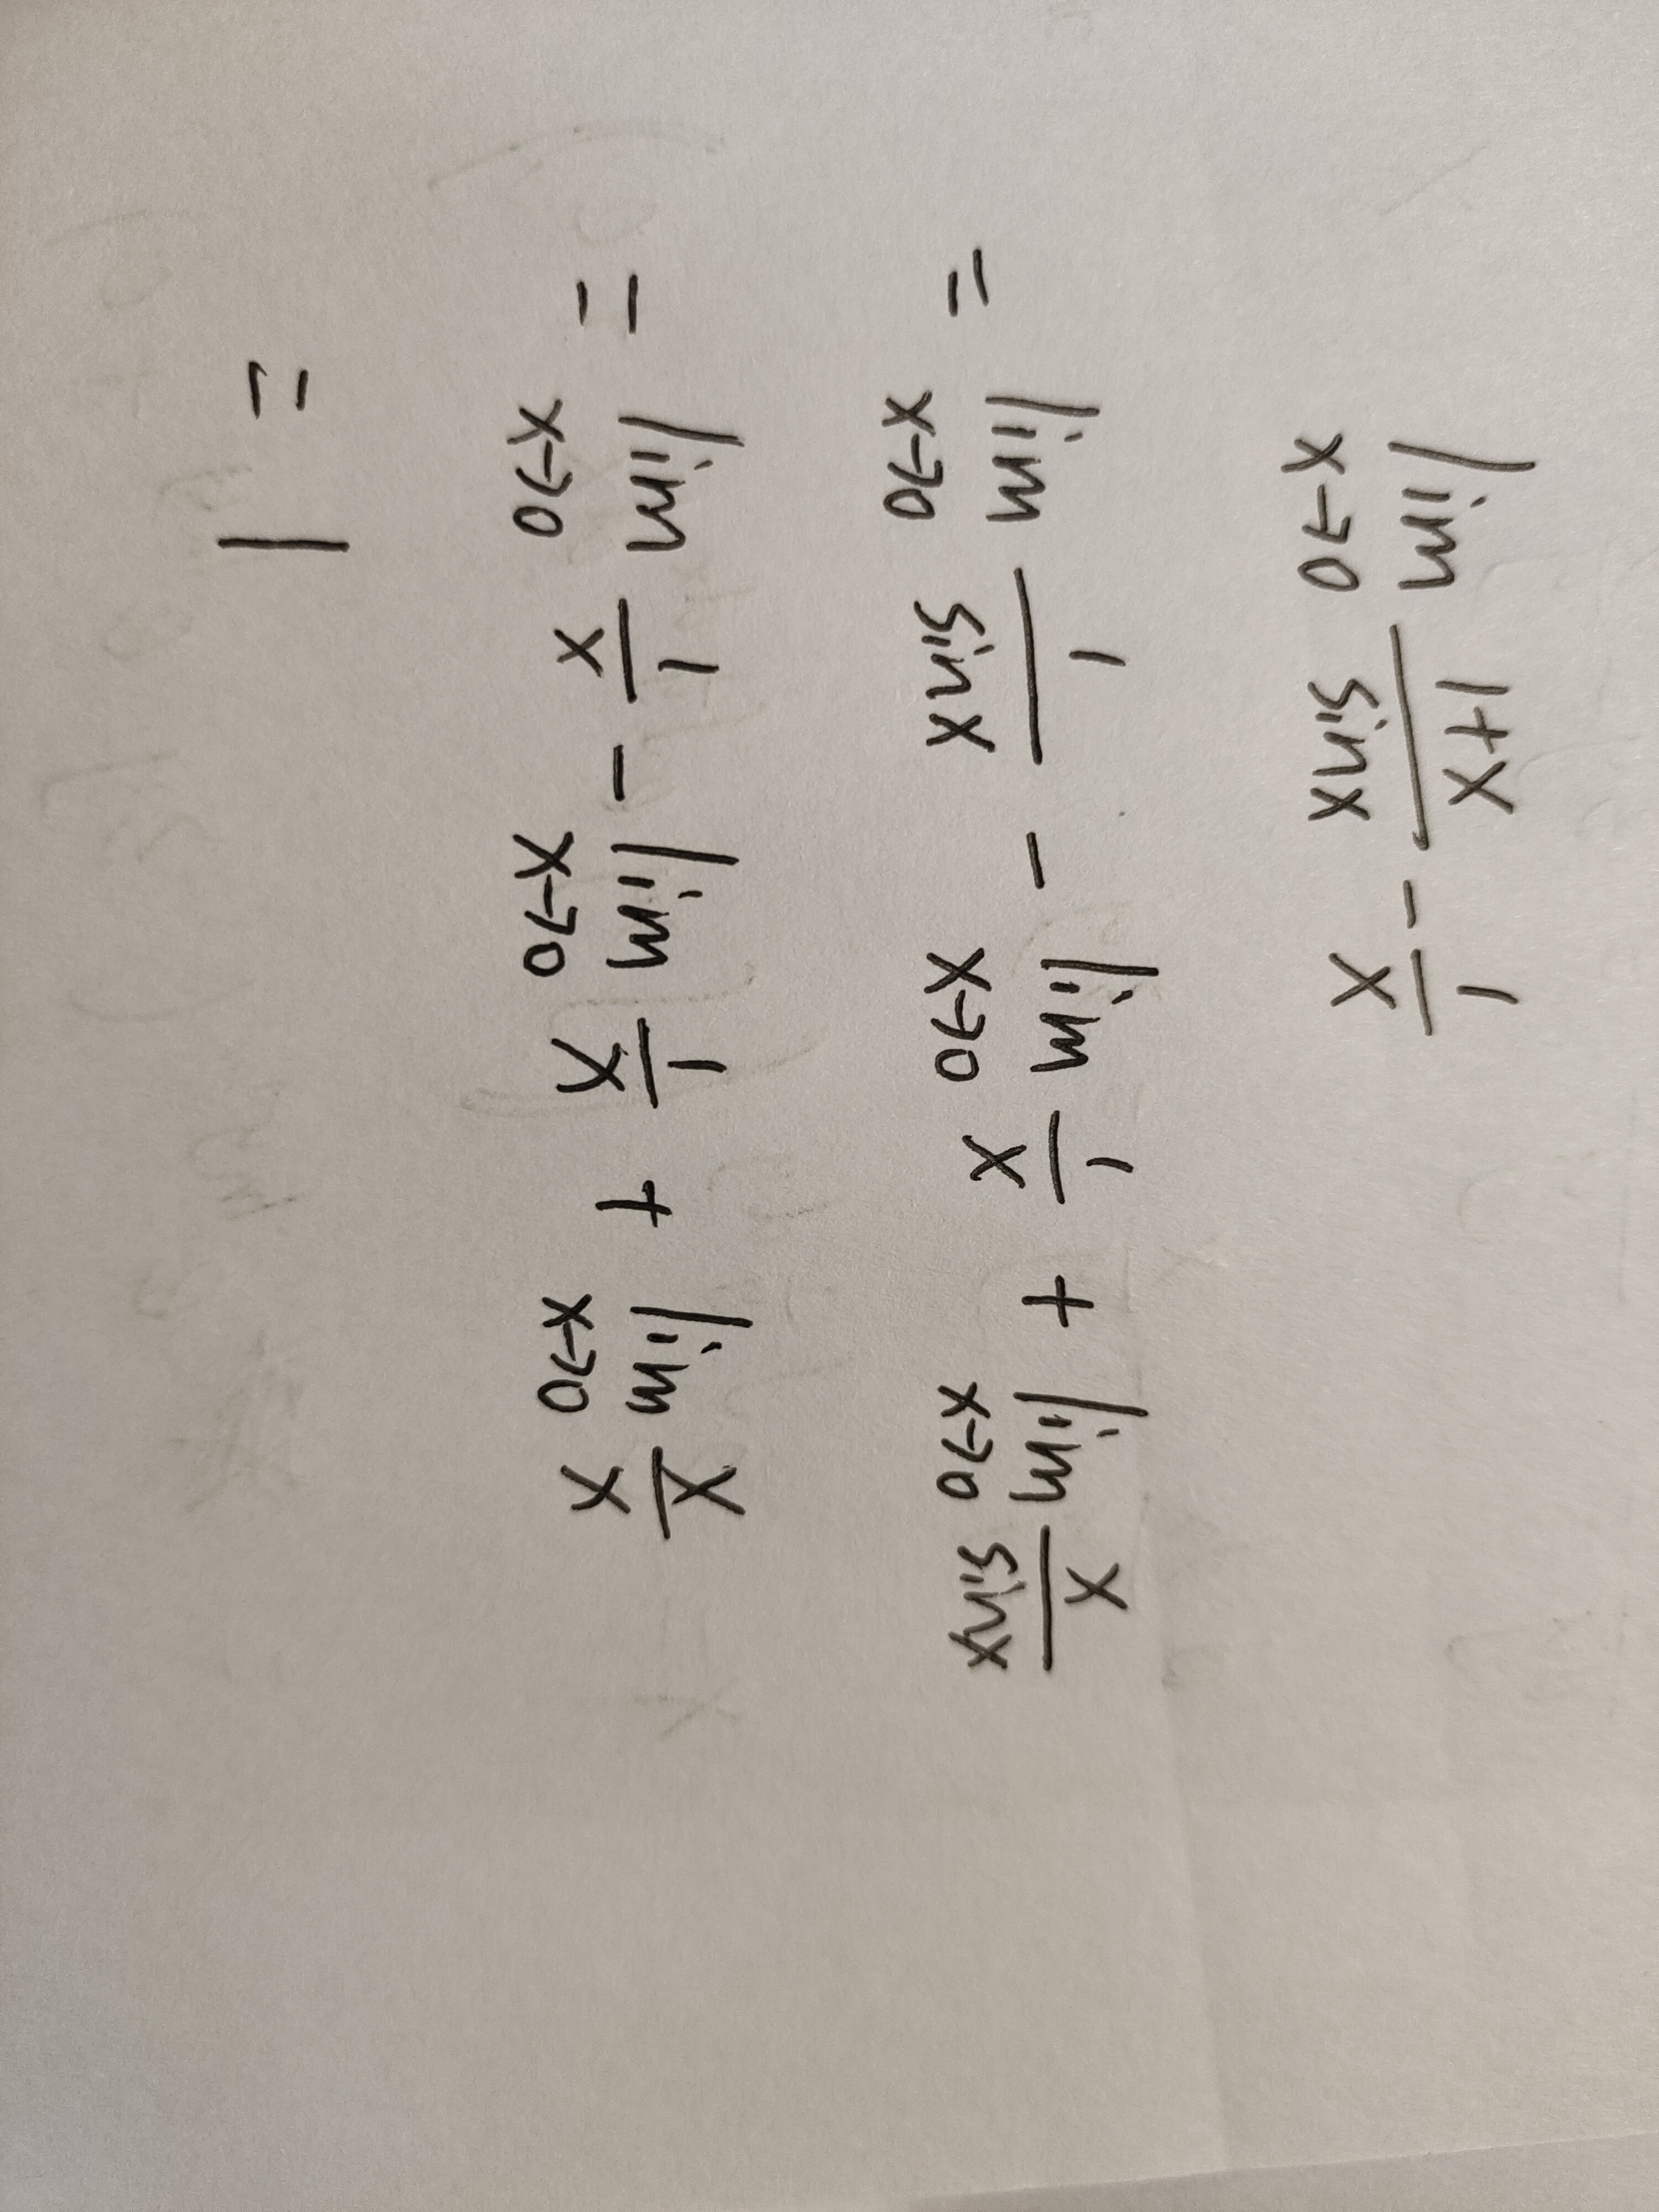 lim x→0 (1+x)/(sin x) - 1/x
= lim x→0 1/(sin x) - lim x→0 1/x + lim x→0 x/(sin x)
= lim x→0 1/x - lim x→0 1/x + lim x→0 x/x
= 1